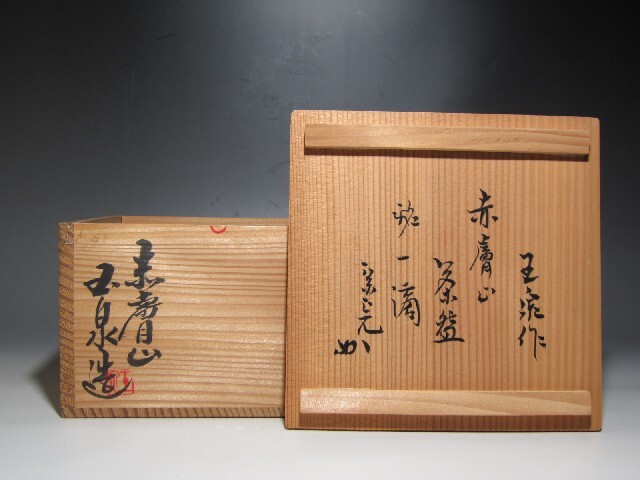 赤膚山
玉泉造
玉泉作
赤膚山
茶盌
銘一滴